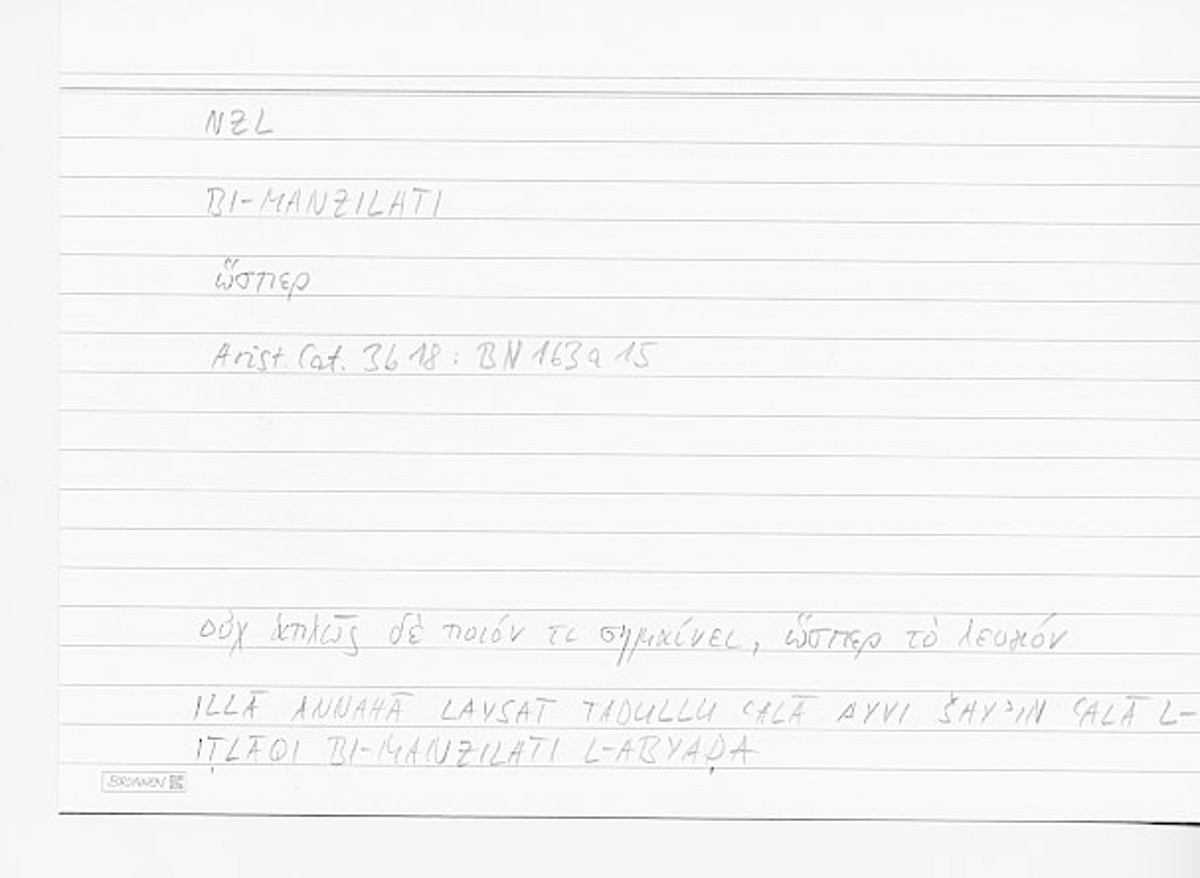 NZL
BI-MANZILATI
ὥσπερ
Arist. Cat. 3b 18 : BN 163a 15
οὐχ ἁπλῶς δὲ ποιόν τι σημαίνει, ὥσπερ τὸ λευκόν
ILLĀ ANNAHĀ LAYSAT TADULLU ʿALĀ AYYI ŠAYʾIN ʿALĀ L-
IṬLĀQI BI-MANZILATI L-ABYAḌA
BRUNNEN